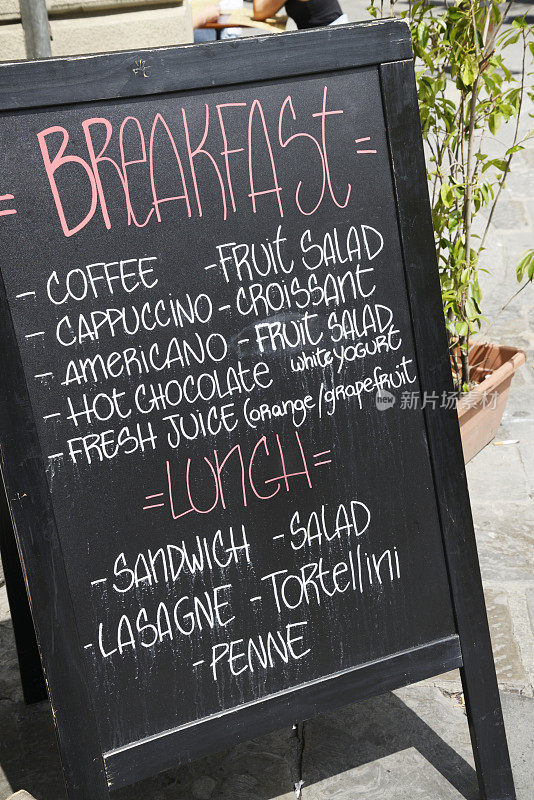 = BREAKfast =
- COFFEE - FRUIT SALAD
- CAPPUCCINO - CROISSANT
- AMERICANO - FRUIT SALAD
white YOGURT
- HOT CHOCOLATE
- FRESH JUICE (orange/grapefruit
= LUNCH =
- SANDWICH - SALAD
- LASAGNE - TORTELLINI
- PENNE
新图网